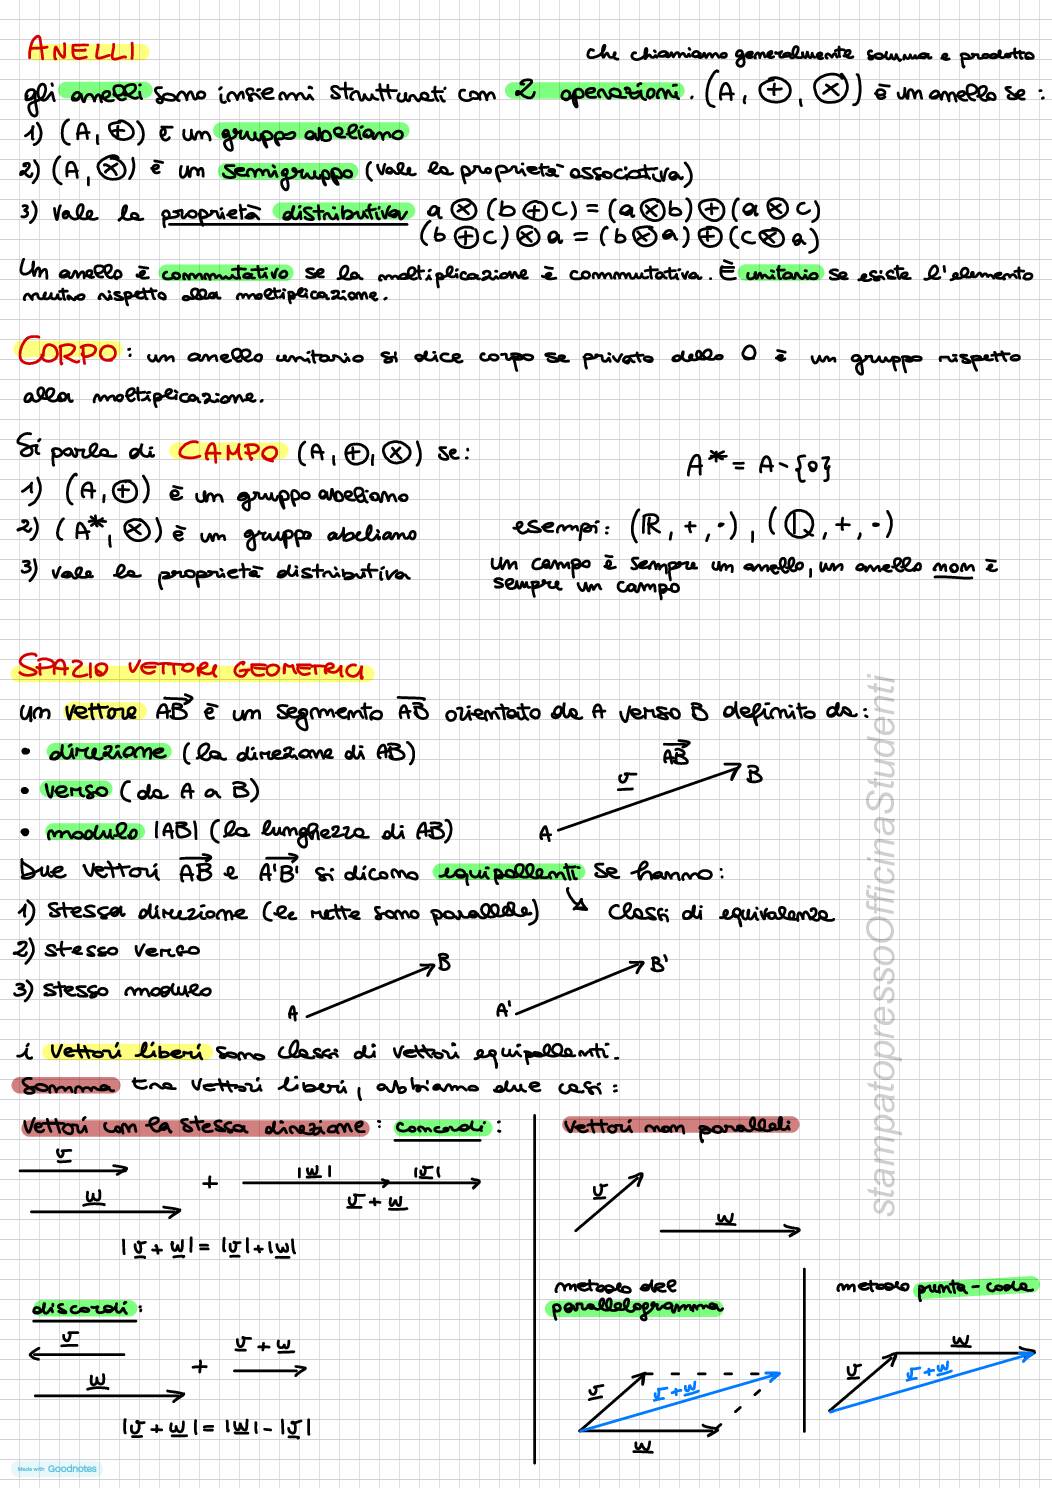 ANELLI
che chiamiamo generalmente somma e prodotto
gli anelli sono insiemi strutturati con 2 operazioni. (A, ⊕, ⊗) è un anello se:
1) (A, ⊕) è un gruppo abeliano
2) (A, ⊗) è un semigruppo (vale la proprietà associativa)
3) vale la proprietà distributiva a ⊗ (b ⊕ c) = (a ⊗ b) ⊕ (a ⊗ c)
(b ⊕ c) ⊗ a = (b ⊗ a) ⊕ (c ⊗ a)
Un anello è commutativo se la moltiplicazione è commutativa. È unitario se esiste l'elemento
neutro rispetto alla moltiplicazione.
CORPO: un anello unitario si dice corpo se privato dello 0 è un gruppo rispetto
alla moltiplicazione.
Si parla di CAMPO (A, ⊕, ⊗) se:
A* = A - {0}
1) (A, ⊕) è un gruppo abeliano
2) (A*, ⊗) è un gruppo abeliano
esempi: (ℝ, +, ·), (ℚ, +, ·)
3) vale la proprietà distributiva
un campo è sempre un anello, un anello non è
sempre un campo
SPAZIO VETTORI GEOMETRICI
un vettore A͞B⃗ è un segmento A͞B orientato da A verso B definito da:
• direzione (la direzione di AB)
• verso (da A a B)
• modulo |AB| (la lunghezza di AB)
v
AB
B
A
Due vettori AB e A'B' si dicono equipollenti se hanno:
1) stessa direzione (le rette sono parallele) ↘ classi di equivalenza
2) stesso verso
3) stesso modulo
A
B
A'
B'
i vettori liberi sono classi di vettori equipollenti.
Somma tra vettori liberi, abbiamo due casi:
vettori con la stessa direzione: concordi:
v
w
+
|w| |v|
v + w
|v + w| = |v| + |w|
discordi:
v
w
+
v + w
|v + w| = |w| - |v|
vettori non paralleli
v
w
metodo del
parallelogramma
v
v + w
w
metodo punta-coda
w
v
v + w
stampatopressoOfficinaStudenti
Made with Goodnotes